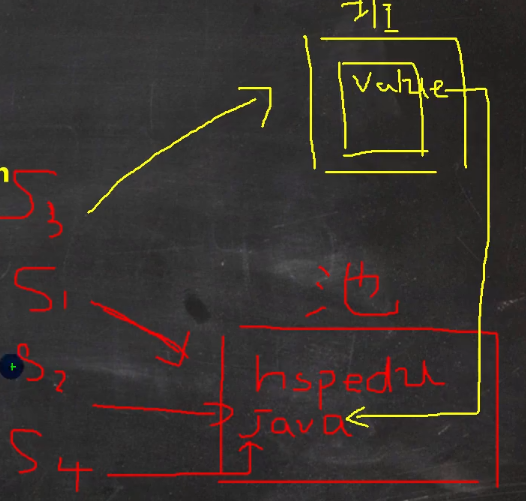 value
S3
S1
池
hspedu
S2
java
S4